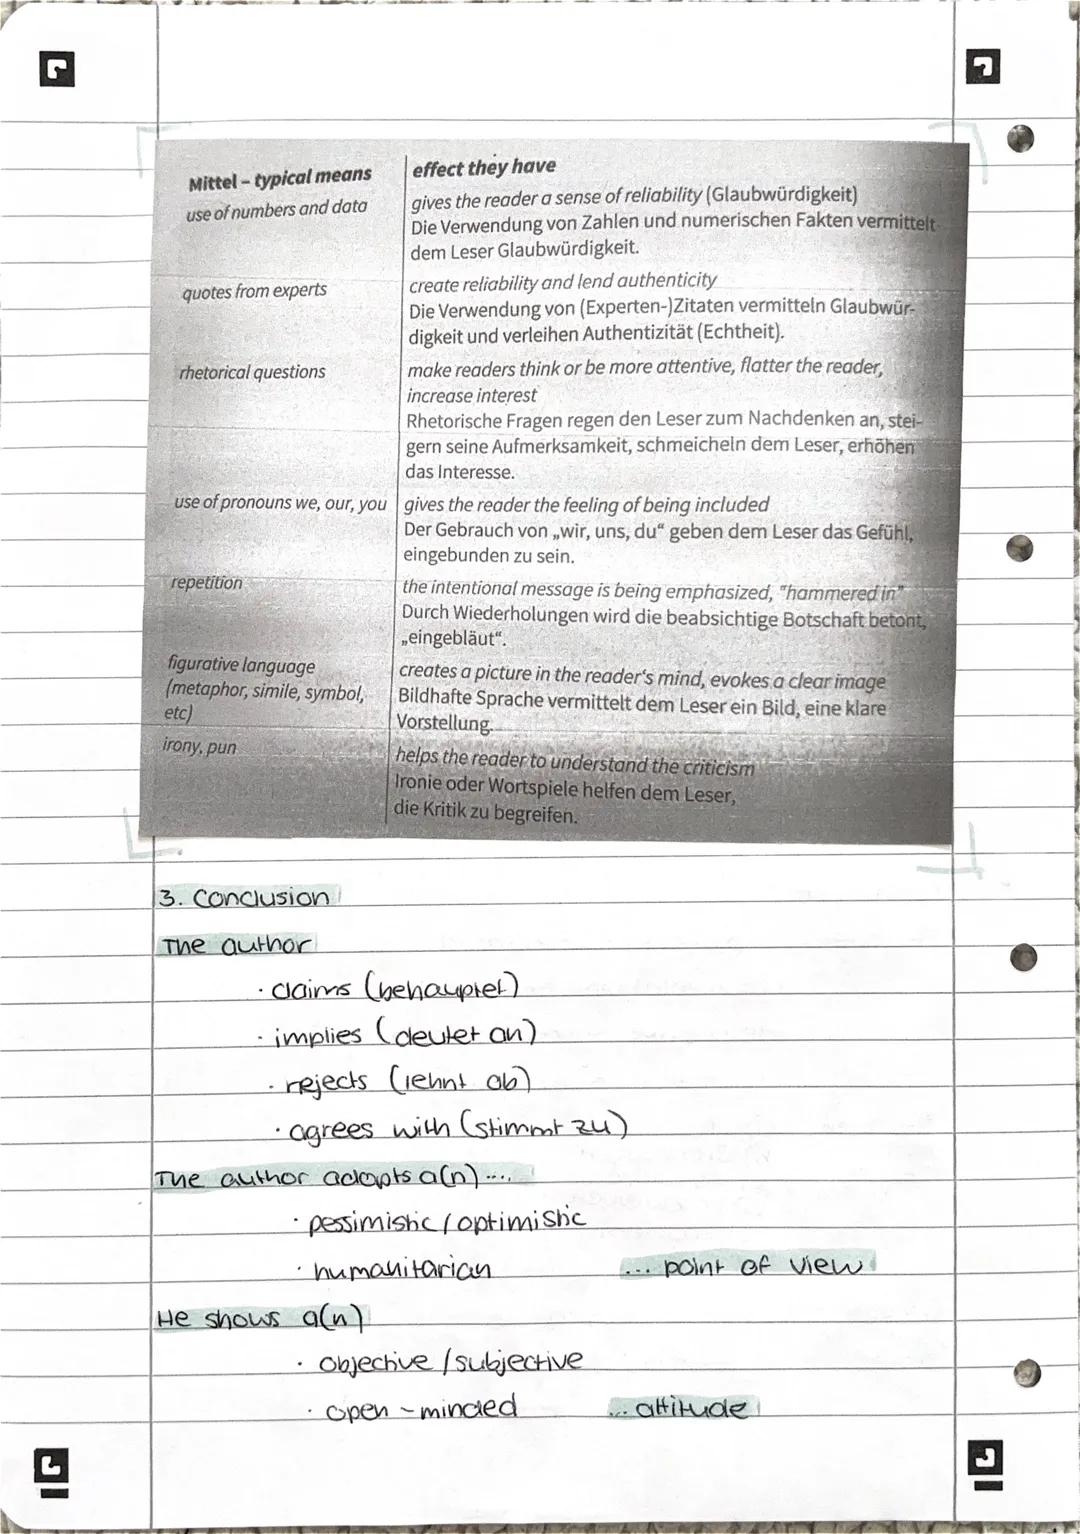 Mittel – typical means
effect they have
use of numbers and data
gives the reader a sense of reliability (Glaubwürdigkeit)
Die Verwendung von Zahlen und numerischen Fakten vermittelt
dem Leser Glaubwürdigkeit.
quotes from experts
create reliability and lend authenticity
Die Verwendung von (Experten-)Zitaten vermitteln Glaubwür-
digkeit und verleihen Authentizität (Echtheit).
rhetorical questions
make readers think or be more attentive, flatter the reader,
increase interest
Rhetorische Fragen regen den Leser zum Nachdenken an, stei-
gern seine Aufmerksamkeit, schmeicheln dem Leser, erhöhen
das Interesse.
use of pronouns we, our, you
gives the reader the feeling of being included
Der Gebrauch von „wir, uns, du“ geben dem Leser das Gefühl,
eingebunden zu sein.
repetition
the intentional message is being emphasized, "hammered in"
Durch Wiederholungen wird die beabsichtige Botschaft betont,
„eingebläut“.
figurative language
(metaphor, simile, symbol,
etc)
creates a picture in the reader's mind, evokes a clear image
Bildhafte Sprache vermittelt dem Leser ein Bild, eine klare
Vorstellung.
irony, pun
helps the reader to understand the criticism
Ironie oder Wortspiele helfen dem Leser,
die Kritik zu begreifen.
3. Conclusion
The author
· claims (behauptet)
· implies (deutet an)
· rejects (lehnt ab)
· agrees with (stimmt zu)
The author adopts a(n) ....
· pessimistic / optimistic
· humanitarian ... point of view
He shows a(n)
· objective / subjective
· open-minded ... attitude